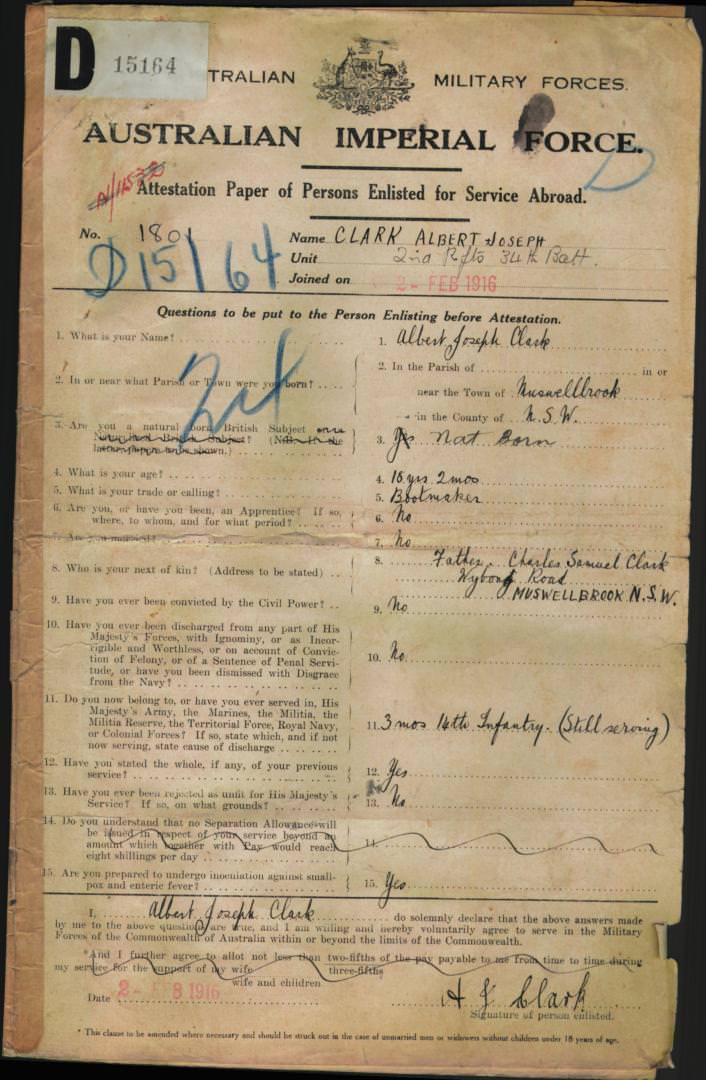 D 15164
AUSTRALIAN MILITARY FORCES.
AUSTRALIAN IMPERIAL FORCE.
D
Attestation Paper of Persons Enlisted for Service Abroad.
No. 1801
Name CLARK ALBERT JOSEPH
D15164
Unit 2nd Rfts 34th Batt.
Joined on 2- FEB 1916
Questions to be put to the Person Enlisting before Attestation.
1. What is your Name?
1. Albert Joseph Clark
2. In or near what Parish or Town were you born?
2. In the Parish of in or
near the Town of Muswellbrook
in the County of N.S.W.
3. Are you a natural born British Subject or a
Naturalised British Subject? (N.B.—If the
latter, papers to be shown.)
3. Yes Nat Born
4. What is your age?
4. 18 yrs 2 mos
5. What is your trade or calling?
5. Bootmaker
6. Are you, or have you been, an Apprentice? If so,
where, to whom, and for what period?
6. No
7. Are you married?
7. No
8. Who is your next of kin? (Address to be stated)
8. Father Charles Samuel Clark
Wybong Road
MUSWELLBROOK N.S.W.
9. Have you ever been convicted by the Civil Power?
9. No
10. Have you ever been discharged from any part of His
Majesty's Forces, with Ignominy, or as Incor-
rigible and Worthless, or on account of Convic-
tion of Felony, or of a Sentence of Penal Servi-
tude, or have you been dismissed with Disgrace
from the Navy?
10. No
11. Do you now belong to, or have you ever served in, His
Majesty's Army, the Marines, the Militia, the
Militia Reserve, the Territorial Force, Royal Navy,
or Colonial Forces? If so, state which, and if not
now serving, state cause of discharge
11. 3 mos 14th Infantry. (Still serving)
12. Have you stated the whole, if any, of your previous
service?
12. Yes
13. Have you ever been rejected as unfit for His Majesty's
Service? If so, on what grounds?
13. No
14. Do you understand that no Separation Allowance will
be issued in respect of your service beyond an
amount which together with Pay would reach
eight shillings per day
14.
15. Are you prepared to undergo inoculation against small-
pox and enteric fever?
15. Yes
I, Albert Joseph Clark do solemnly declare that the above answers made
by me to the above questions are true, and I am willing and hereby voluntarily agree to serve in the Military
Forces of the Commonwealth of Australia within or beyond the limits of the Commonwealth.
*And I further agree to allot not less than two-fifths of the pay payable to me from time to time during
three-fifths
my service for the support of my wife
wife and children
Date 2- FEB 1916
A J Clark
Signature of person enlisted.
* This clause to be amended where necessary and should be struck out in the case of unmarried men or widowers without children under 18 years of age.